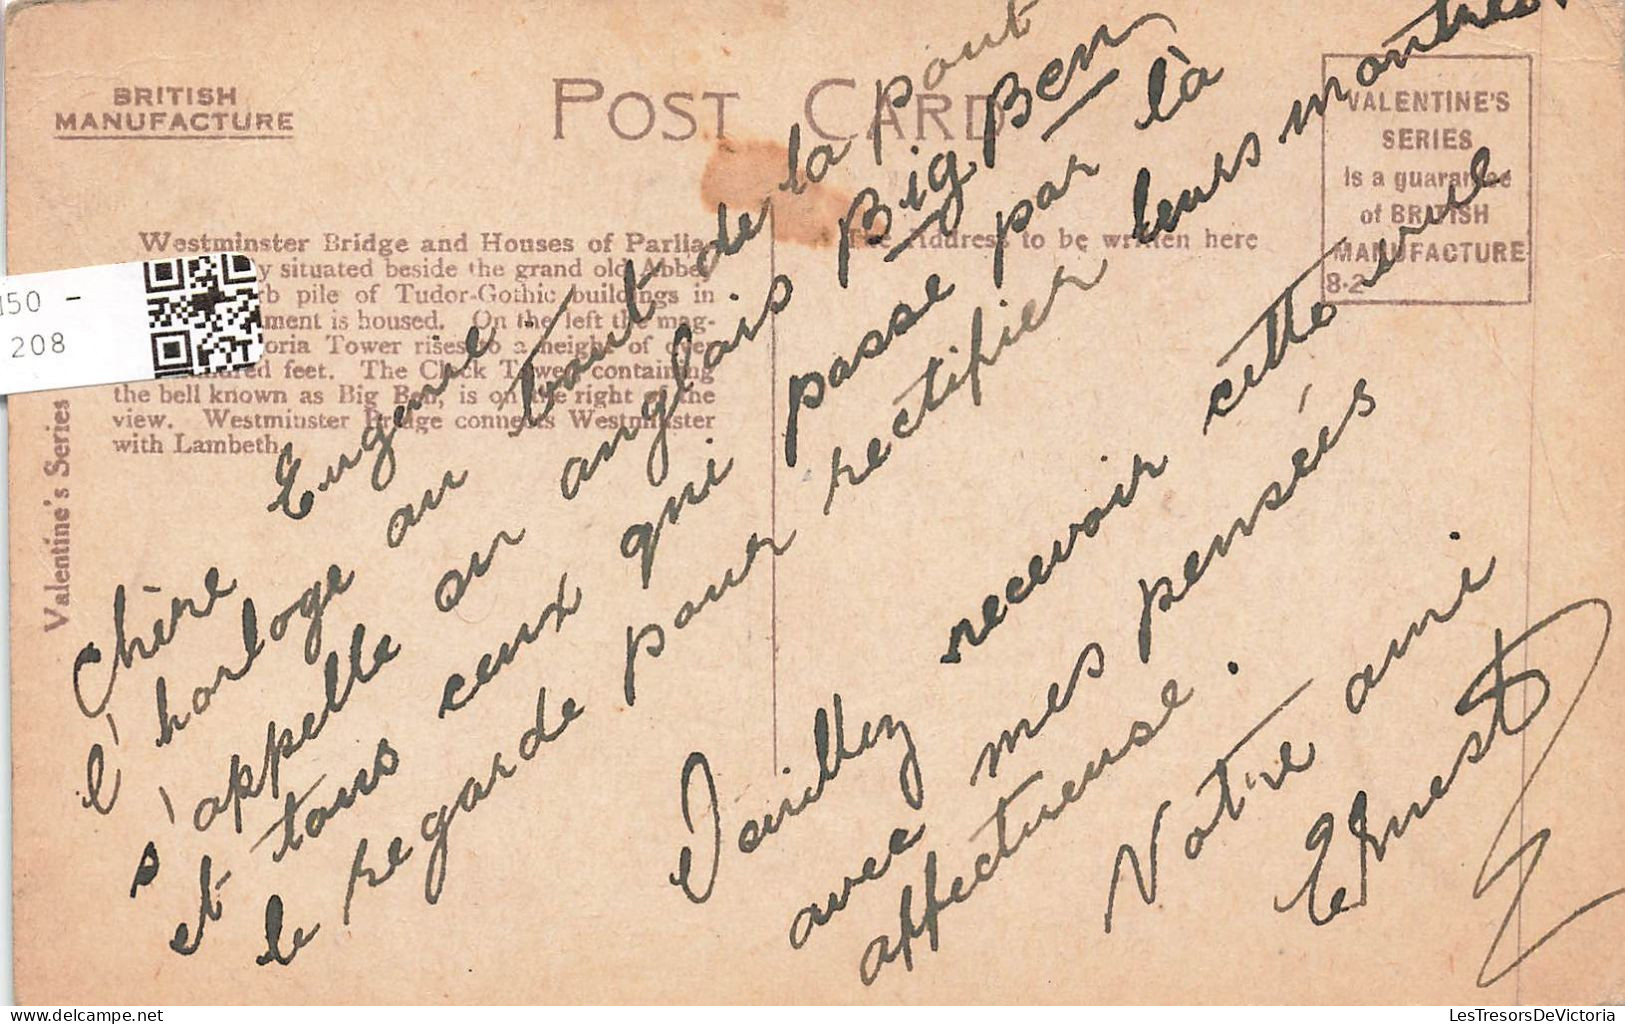 BRITISH
MANUFACTURE
POST CARD
VALENTINE'S
SERIES
Is a guarantee
of BRITISH
MANUFACTURE
8.2
The Address to be written here
Westminster Bridge and Houses of Parlia-
y situated beside the grand old Abbey
rb pile of Tudor-Gothic buildings in
ment is housed. On the left the mag-
oria Tower rises to a height of over
red feet. The Clock Tower containing
the bell known as Big Ben, is on the right of the
view. Westminster Bridge connects Westminster
with Lambeth.
Valentine's Series
150 -
208
Chère Eugenie /
l'horloge au bout de la pont
s'appelle en anglais Big Ben
et tous ceux qui passe par là
le regarde pour rectifier leurs montres.
Veuillez recevoir cette vue
avec mes pensées
affectueuse.
Votre ami
Ernest
delcampe.net
LesTresorsDeVictoria